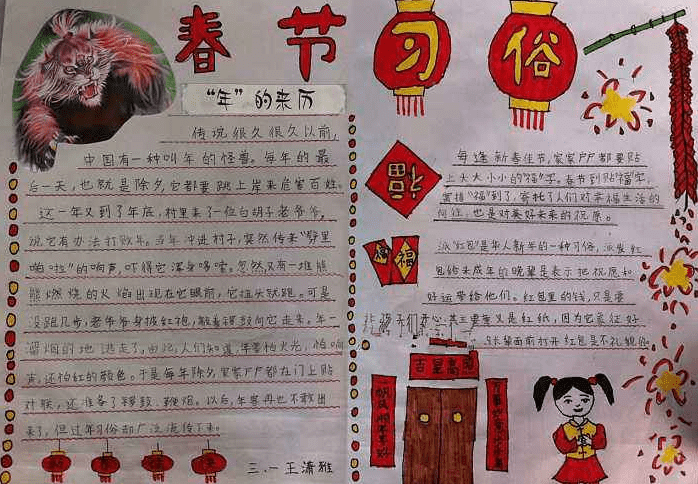 春节习俗
“年”的来历
传说很久很久以前，
中国有一种叫年的怪兽。每年的最
后一天，也就是除夕，它都要跳上岸来危害百姓。
这一年又到了年底，村里来了一位白胡子老爷爷，
说它有办法打败年。当年冲进村子，突然传来“劈里
啪啦”的响声，吓得它浑身哆嗦。忽然，又有一堆熊
熊燃烧的火焰出现在它眼前，它扭头就跑。可是
没跑几步，老爷爷身披红袍，敲着锣鼓向它走来。年一
溜烟的地逃走了。由此，人们知道，年害怕火光，怕响
声，还怕红的颜色。于是每年除夕，家家户户都在门上贴
对联，还准备了锣鼓、鞭炮。以后，年兽再也不敢出
来了，但过年习俗却广泛流传下来。
新春佳
三.一 王潇雅
福
每逢新春佳节，家家户户都要贴
上大大小小的“福”字。春节到贴福字，
“福”到了，寄托了人们对幸福生活的
向往，也是对美好未来的祝愿。
福福
派“红包”是华人新年的一种习俗，派发红
包给未成年的晚辈是表示把祝愿和
好运带给他们。红包里的钱，只是要
让孩子们开心，其主要意义是红纸，因为它象征好
长辈面前打开红包是不礼貌的
吉星高照
一帆风顺年年好
万事如意步步高